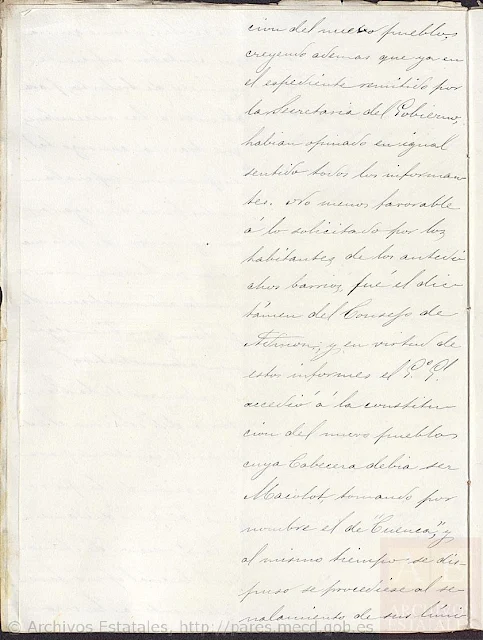 cion del nuevo pueblo,
creyendo ademas que ya en
el espediente remitido por
la Secretaria del Gobierno,
habian opinado en igual
sentido todos los informan
tes. No menos favorable
á lo solicitado por los
habitantes de los antedi
chos barrios, fué el dic
támen del Consejo de
Admon; y en virtud de
estos informes el G.º G.l
accedió á la constitu
cion del nuevo pueblo
cuya Cabecera debia ser
tomando por
nombre el de "Cuenca", y
al mismo tiempo se dis-
puso se procediese al se
ñalamiento de sus lími
© Archivos Estatales, http://pares.mecd.gob.es